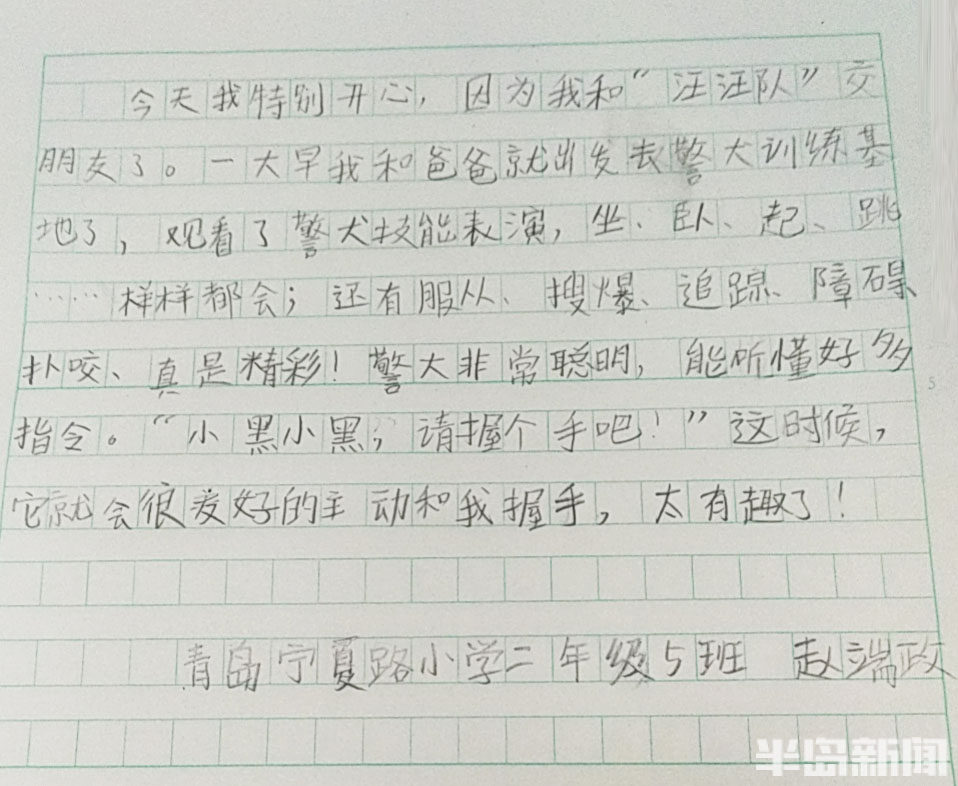 今天我特别开心，因为我和“汪汪队”交
朋友了。一大早我和爸爸就出发去警犬训练基
地了，观看了警犬技能表演，坐、卧、起、跳
……样样都会；还有服从、搜爆、追踪、障碍
扑咬、真是精彩！警犬非常聪明，能听懂好多
指令。“小黑小黑，请握个手吧！”这时候，
它就会很友好的主动和我握手，太有趣了！
青岛宁夏路小学二年级5班 赵端政
半岛新闻